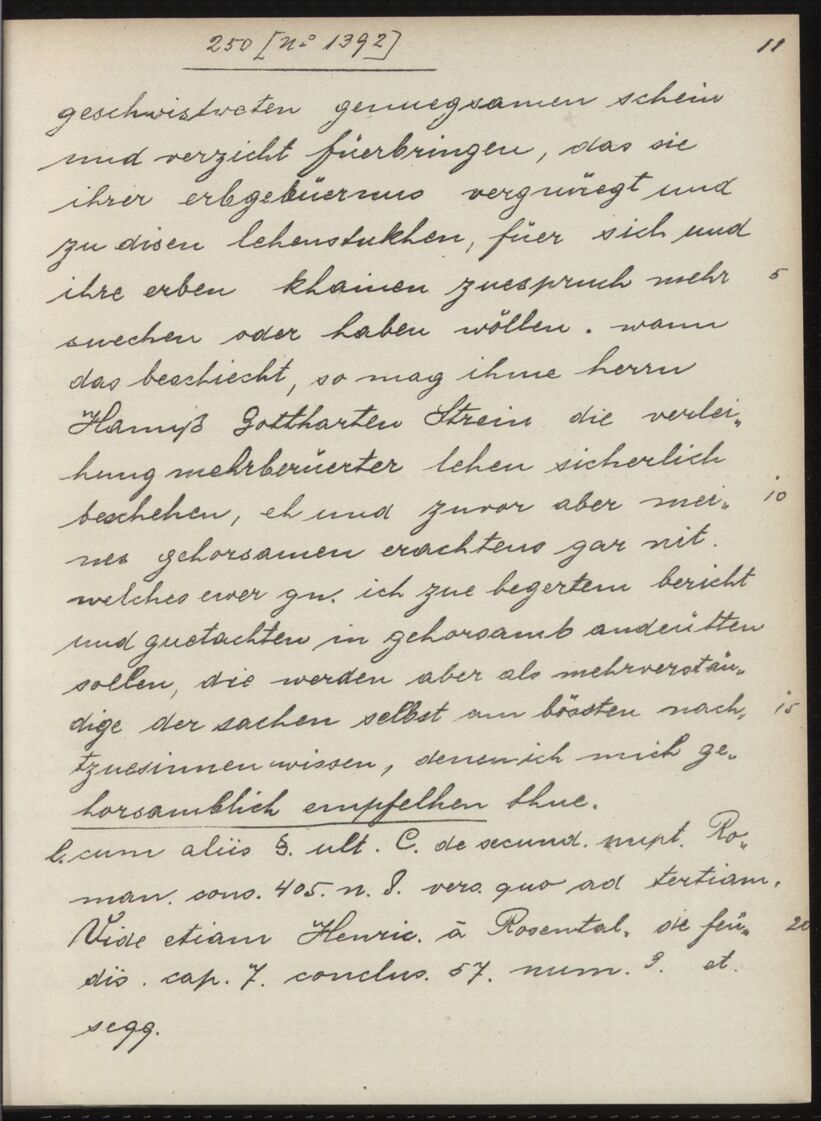 250 [No 1392]
11
geschwistraten genuegsamen schein
und verzicht füerbringen, das sie
ihrer erbgebüernus vergnüegt und
zu disen lehenstukhen, füer sich und
ihre erben khainen zuespruch mehr 5
suechen oder haben wöllen. wann
das beschiecht, so mag ihme herrn
Hannß Gottharten Strein die verlei„
hung mehrberüerter lehen sicherlich
beschehen, eh und zuvor aber mei„ 10
nes gehorsamen erachtens gar nit.
welches ewer gn. ich zue begertem bericht
und guetachten in gehorsamb andeütten
sollen, die werden aber als mehrverstän„
dige der sachen selbst am bössten nach„ 15
tzuesinnen wissen, denen ich mich ge„
horsamblich empfelhen thue.
l. cum aliis §. ult. C. de secund. nupt. Ro„
man. cons. 405. n. 8. vers. quo ad tertiam.
Vide etiam Henric. à Rosental. de feu„ 20
dis. cap. 7. conclus. 57. num. 3. et.
seqq.